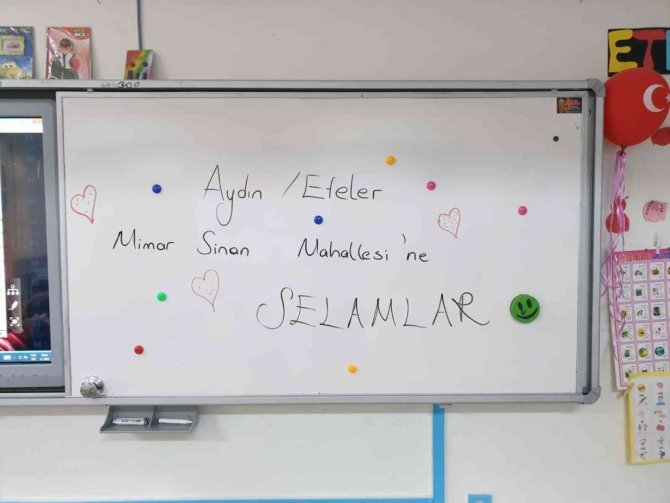 Aydın / Efeler
Mimar Sinan Mahallesi'ne
SELAMLAR
300